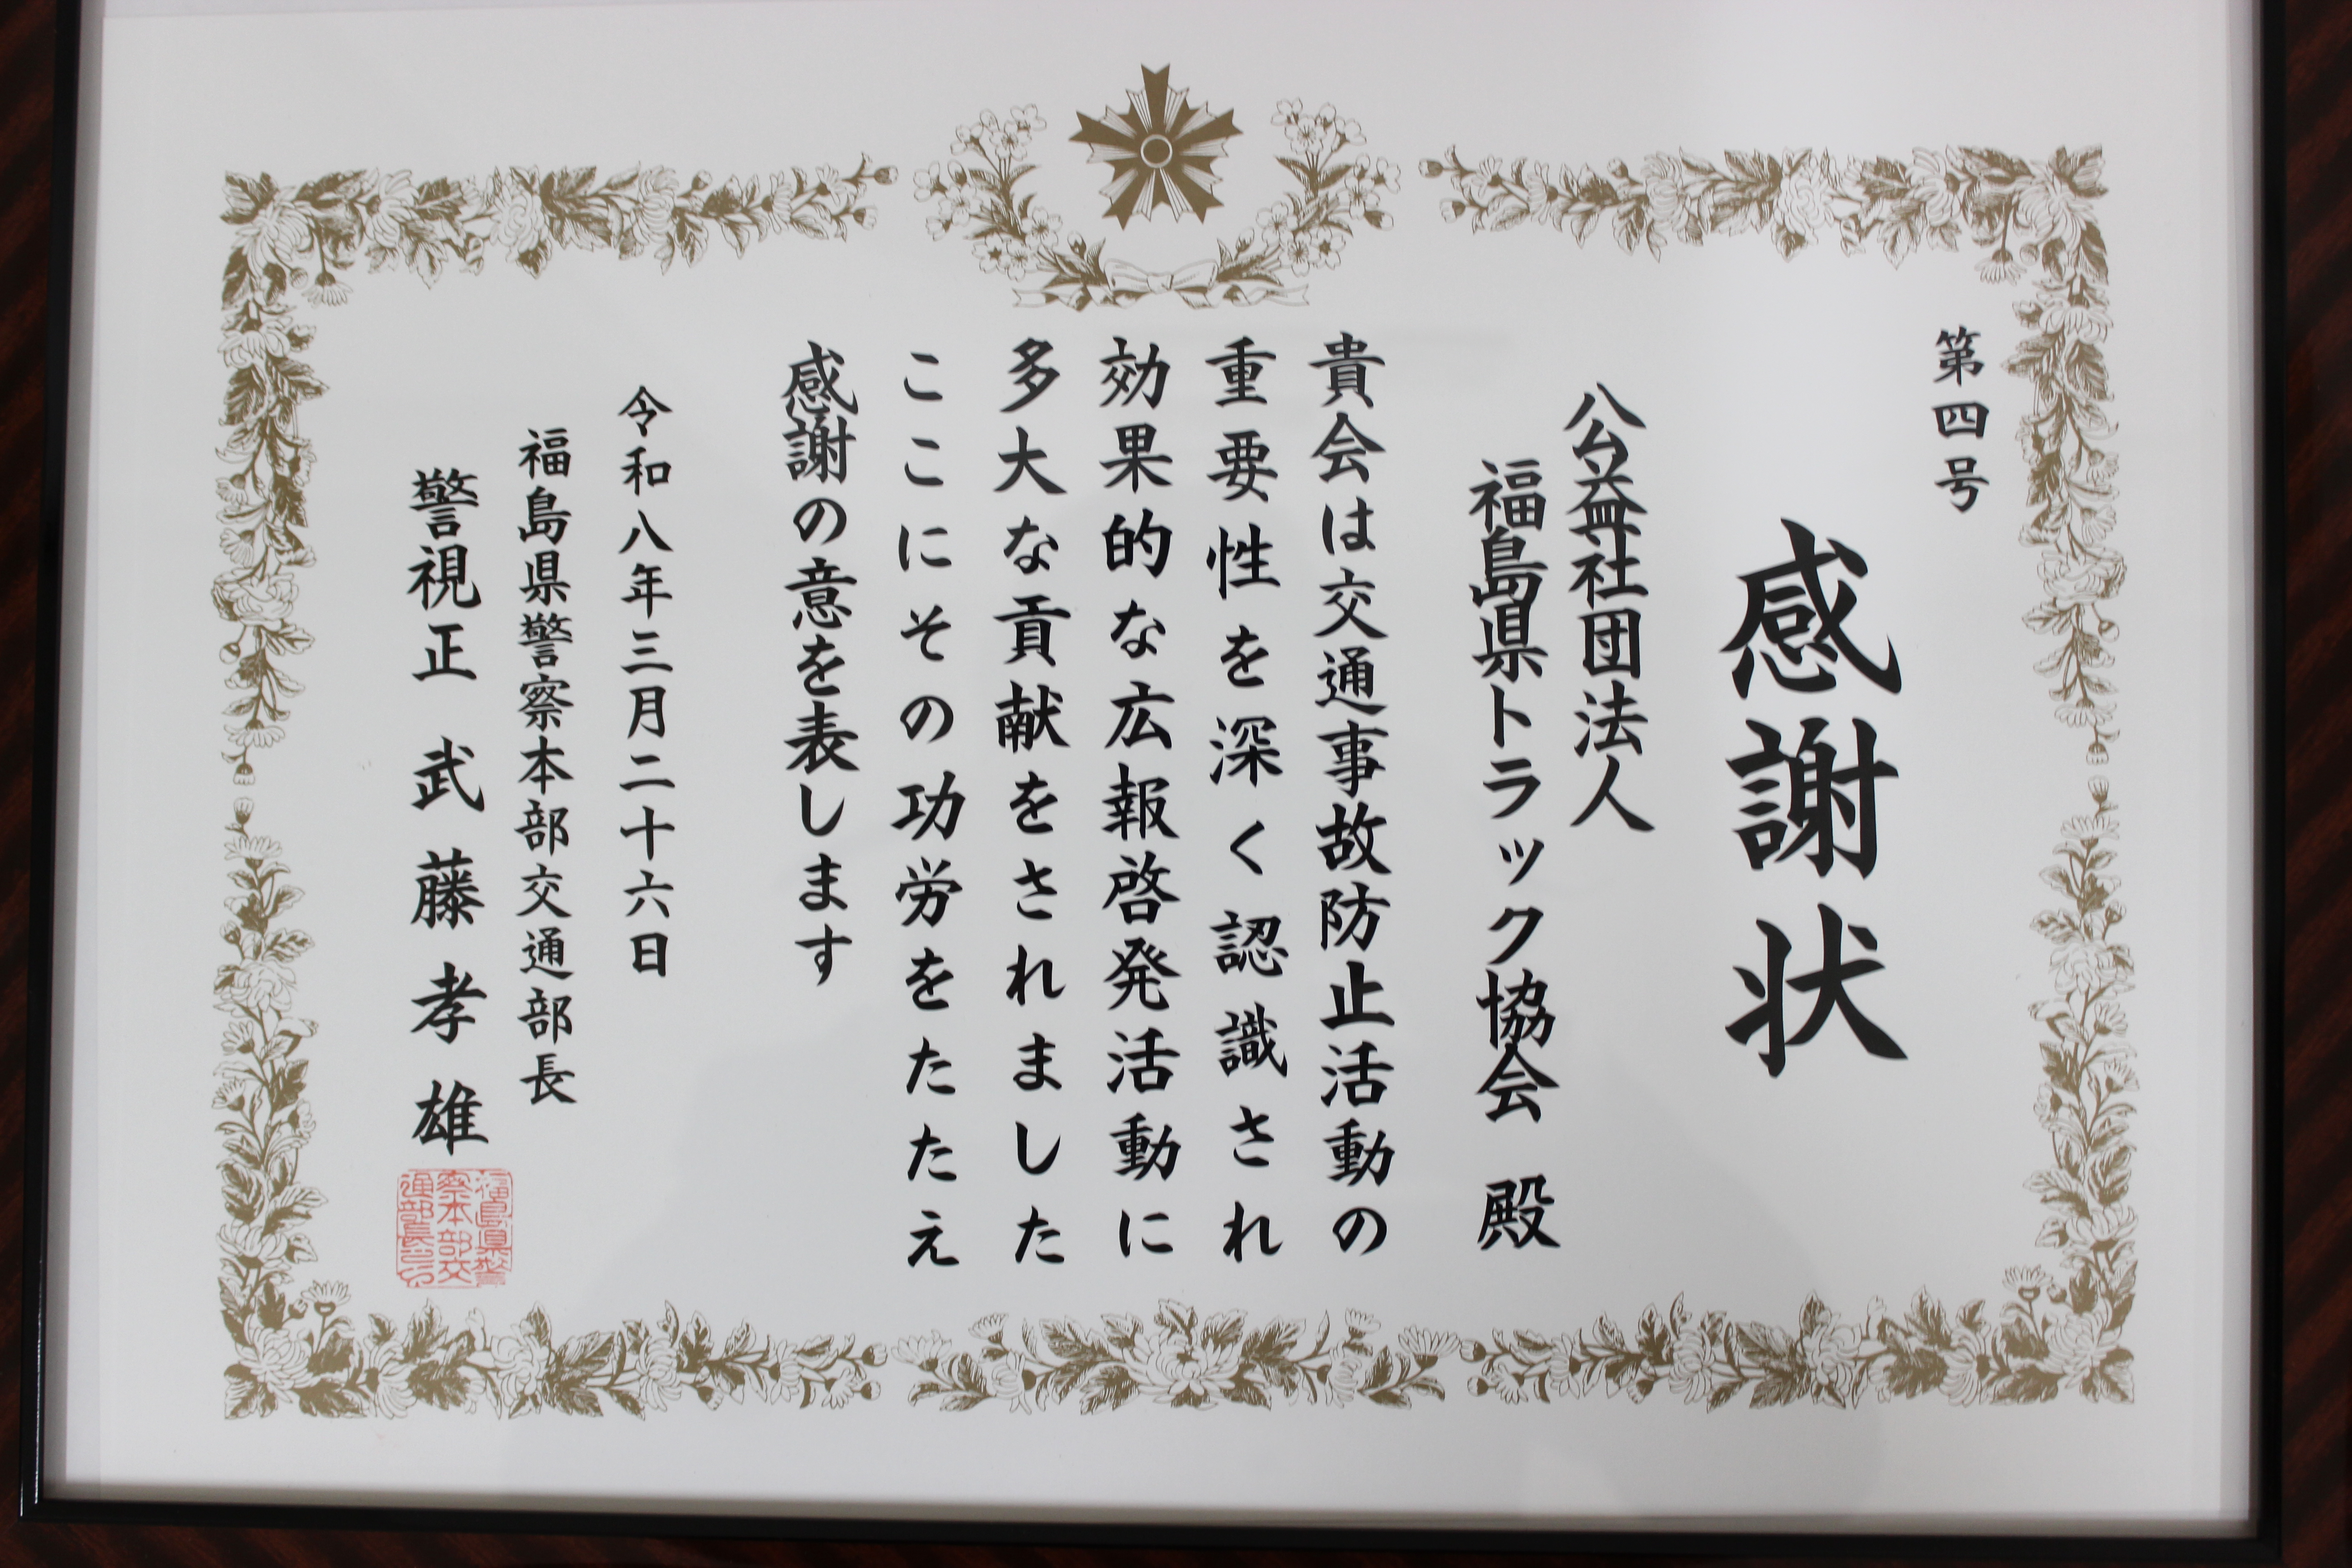 第四号
感謝状
公益社団法人
福島県トラック協会 殿
貴会は交通事故防止活動の
重要性を深く認識され
効果的な広報啓発活動に
多大な貢献をされました
ここにその功労をたたえ
感謝の意を表します
令和八年三月二十六日
福島県警察本部交通部長
警視正 武藤孝雄
福島県警
察本部交
通部長之印